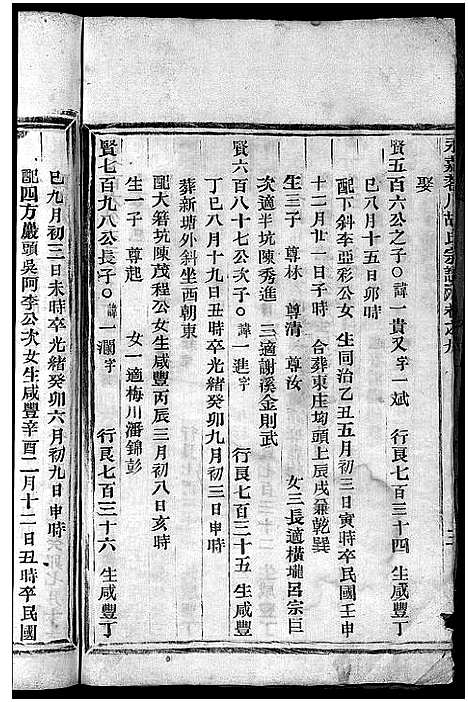 永嘉 川胡氏宗譜 卷之九
娶
賢五百六公之子○諱一貴又字一斌 行良七百三十四 生咸豐丁
巳八月十五日卯時
配下斜李亞彩公女 生同治乙丑五月初三日寅時卒民國壬申
十二月廿一日時 合葬東庄垇頭上辰戌兼乾巽
生三子 尊林 尊清 尊汝 女三長適橫壠呂宗巨
次適半坑陳秀進 三適謝溪金則武
賢六百八十七公次子○諱一進字 行良七百三十五 生咸豐
丁巳八月十九日丑時卒光緒癸卯九月初三日申時
葬新塘外斜坐西朝東
配大箬坑陳茂程公女生咸豐丙辰三月初八日亥時
生一子 尊起 女一適梅川潘錦彭
賢七百九八公長子○諱一瀾字 行良七百三十六 生咸豐丁
巳九月初三日未時卒光緒癸卯六月初九日申時
配四方巖頭吳阿李公次女生咸豐辛酉二月十二日丑時卒民國